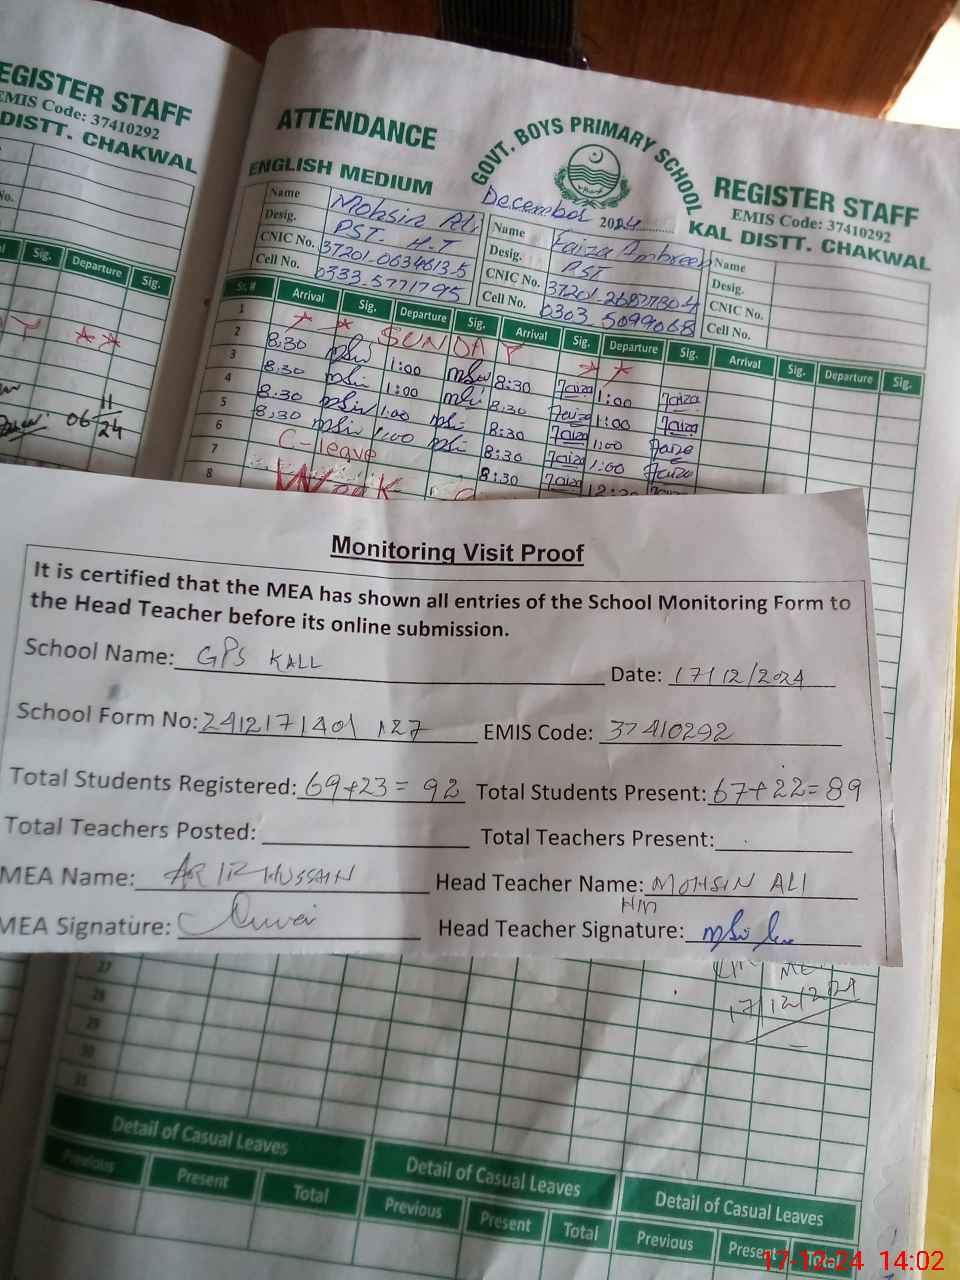 EGISTER STAFF
EMIS Code: 37410292
DISTT. CHAKWAL
No.
Sig. Departure Sig.
06 11/24
ATTENDANCE
GOVT. BOYS PRIMARY SCHOOL
REGISTER STAFF
ENGLISH MEDIUM
EMIS Code: 37410292
KAL DISTT. CHAKWAL
December 2024
Name Mohsin Ali Name Faiza Ambreen Name
Desig. PST. H.T Desig. PST Desig.
CNIC No. 37201-0634613-5 CNIC No. CNIC No.
Cell No. 0333-5771795 Cell No. 0303-5099068 Cell No.
Sr. # Arrival Sig. Departure Sig. Arrival Sig. Departure Sig. Arrival Sig. Departure Sig.
1 SUNDAY
2 8:30 1:00 8:30 Faiza 1:00 Faiza
3 8:30 1:00 8:30 Faiza 1:00 Faiza
4 8:30 1:00 8:30 Faiza 1:00 Faiza
5 8:30 1:00 8:30 Faiza 1:00 Faiza
6 C-leave 8:30 Faiza
7
8
Monitoring Visit Proof
It is certified that the MEA has shown all entries of the School Monitoring Form to
the Head Teacher before its online submission.
School Name: GPS KALL
Date: 17/12/2024
School Form No: EMIS Code: 37410292
Total Students Registered: 69+23= 92 Total Students Present: 67+22=89
Total Teachers Posted: Total Teachers Present:
MEA Name: HUSSAIN Head Teacher Name: MOHSIN ALI
HM
MEA Signature: Head Teacher Signature:
17/12/2024
27
28
29
30
31
Detail of Casual Leaves Detail of Casual Leaves Detail of Casual Leaves
Previous Present Total Previous Present Total Previous Present Total
17-12-24 14:02